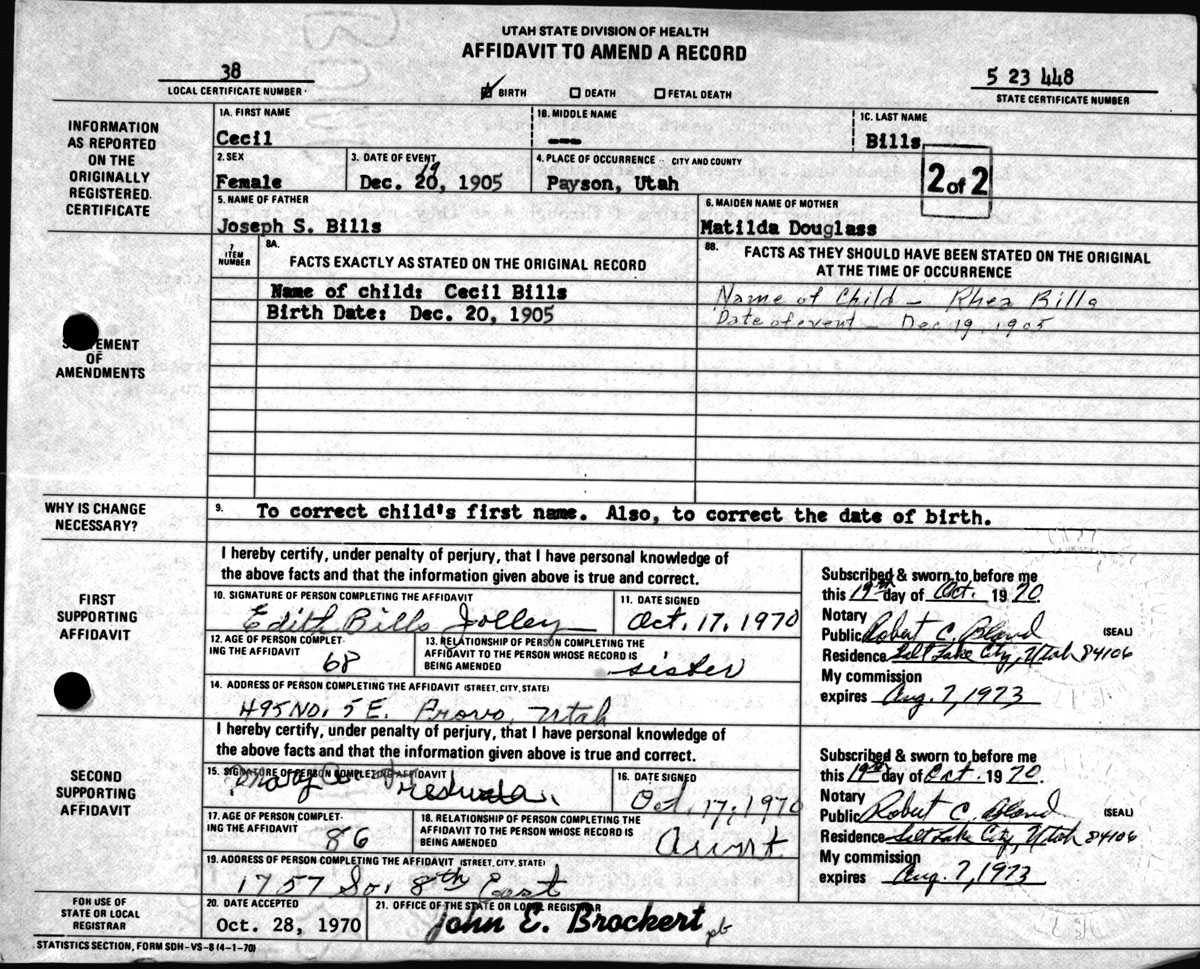 UTAH STATE DIVISION OF HEALTH
AFFIDAVIT TO AMEND A RECORD
38
LOCAL CERTIFICATE NUMBER
BIRTH DEATH FETAL DEATH
5 23 448
STATE CERTIFICATE NUMBER
INFORMATION
AS REPORTED
ON THE
ORIGINALLY
REGISTERED
CERTIFICATE
1A. FIRST NAME 1B. MIDDLE NAME 1C. LAST NAME
Cecil --- Bills
2. SEX 3. DATE OF EVENT 4. PLACE OF OCCURRENCE -- CITY AND COUNTY
19
Female Dec. 20, 1905 Payson, Utah
2 of 2
5. NAME OF FATHER 6. MAIDEN NAME OF MOTHER
Joseph S. Bills Matilda Douglass
STATEMENT
OF
AMENDMENTS
7
ITEM
NUMBER
8A.
FACTS EXACTLY AS STATED ON THE ORIGINAL RECORD
8B. FACTS AS THEY SHOULD HAVE BEEN STATED ON THE ORIGINAL
AT THE TIME OF OCCURRENCE
Name of child: Cecil Bills Name of Child - Rhea Bills
Birth Date: Dec. 20, 1905 Date of event - Dec 19, 1905
WHY IS CHANGE
NECESSARY?
9. To correct child's first name. Also, to correct the date of birth.
FIRST
SUPPORTING
AFFIDAVIT
I hereby certify, under penalty of perjury, that I have personal knowledge of
the above facts and that the information given above is true and correct.
10. SIGNATURE OF PERSON COMPLETING THE AFFIDAVIT 11. DATE SIGNED
Edith Bills Jolley Oct. 17, 1970
12. AGE OF PERSON COMPLET-
ING THE AFFIDAVIT
68
13. RELATIONSHIP OF PERSON COMPLETING THE
AFFIDAVIT TO THE PERSON WHOSE RECORD IS
BEING AMENDED
sister
14. ADDRESS OF PERSON COMPLETING THE AFFIDAVIT (STREET, CITY, STATE)
495 No. 5 E. Provo, Utah
Subscribed & sworn to before me
this 19th day of Oct. 1970.
Notary
Public Robert C. (SEAL)
Residence Salt Lake City, Utah 84106
My commission
expires Aug. 7, 1973
SECOND
SUPPORTING
AFFIDAVIT
I hereby certify, under penalty of perjury, that I have personal knowledge of
the above facts and that the information given above is true and correct.
15. SIGNATURE OF PERSON COMPLETING AFFIDAVIT 16. DATE SIGNED
Mary Oct. 17, 1970
17. AGE OF PERSON COMPLET-
ING THE AFFIDAVIT
86
18. RELATIONSHIP OF PERSON COMPLETING THE
AFFIDAVIT TO THE PERSON WHOSE RECORD IS
BEING AMENDED
Aunt
19. ADDRESS OF PERSON COMPLETING THE AFFIDAVIT (STREET, CITY, STATE)
1757 So. 8th East
Subscribed & sworn to before me
this 19th day of Oct. 1970.
Notary
Public Robert C. (SEAL)
Residence Salt Lake City, Utah 84106
My commission
expires Aug. 7, 1973
FOR USE OF
STATE OR LOCAL
REGISTRAR
20. DATE ACCEPTED 21. OFFICE OF THE STATE OR LOCAL REGISTRAR
Oct. 28, 1970 John E. Brockert
STATISTICS SECTION, FORM SDH-VS-8 (4-1-70)